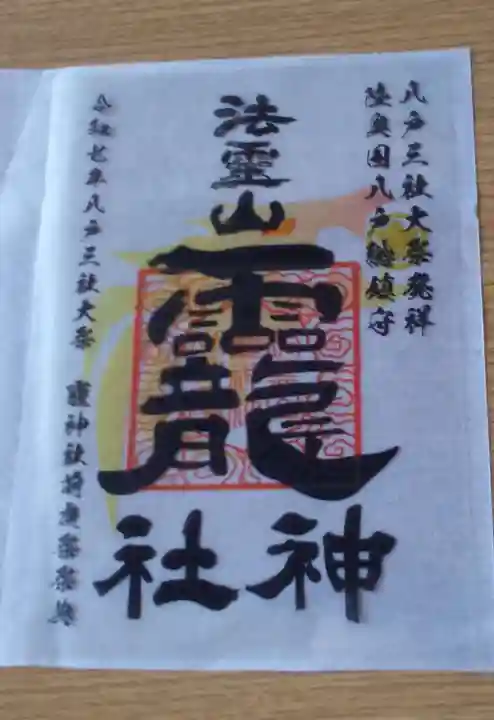 八戸三社大祭発祥
陸奥国八戸總鎮守
法靈山
龗
神社
令和七年八戸三社大祭 龗神社附祭